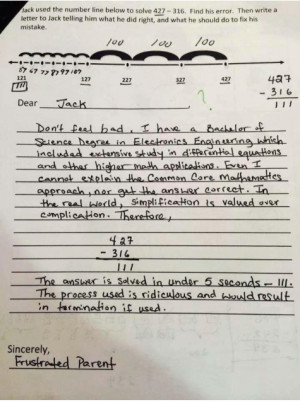 Jack used the number line below to solve 427 – 316. Find his error. Then write a
letter to Jack telling him what he did right, and what he should do to fix his
mistake.
100 100 100
57 67 77 87 97 107
121 127 227 327 427
111
427
- 316
111
?
Dear Jack
Don't feel bad. I have a Bachelor of
Science Degree in Electronics Engineering which
included extensive study in differential equations
and other higher math applications. Even I
cannot explain the Common Core mathematics
approach, nor get the answer correct. In
the real world, simplification is valued over
complication. Therefore,
427
- 316
111
The answer is solved in under 5 seconds - 111.
The process used is ridiculous and would result
in termination if used.
Sincerely,
Frustrated Parent